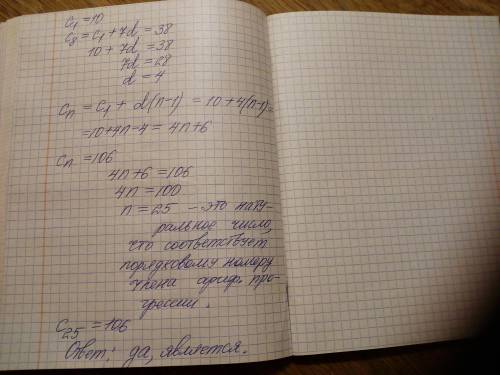 c₁ = 10
c₈ = c₁ + 7d = 38
10 + 7d = 38
7d = 28
d = 4
cₙ = c₁ + d(n-1) = 10 + 4(n-1) =
= 10 + 4n - 4 = 4n + 6
cₙ = 106
4n + 6 = 106
4n = 100
n = 25 - это нату-
ральное число,
что соответствует
порядковому номеру
члена ариф. про-
грессии.
c₂₅ = 106
Ответ: да, является.